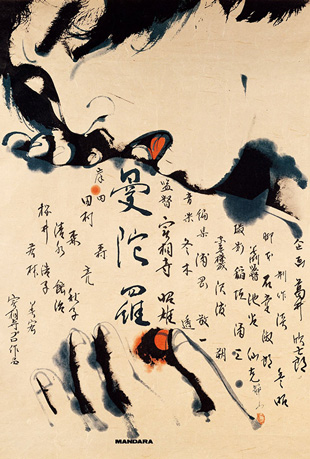 企画 葛井 欣士郎
制作 淡 豊昭
脚本 石堂 淑朗
美術 池谷 仙克
撮影 稲垣 涌三
編集 浦岡 敬一
音楽 冬木 透
監督 実相寺 昭雄
曼陀羅
田村 亮
森 秋子
清水 紘治
桜井 浩子
若林 美宏
MANDARA